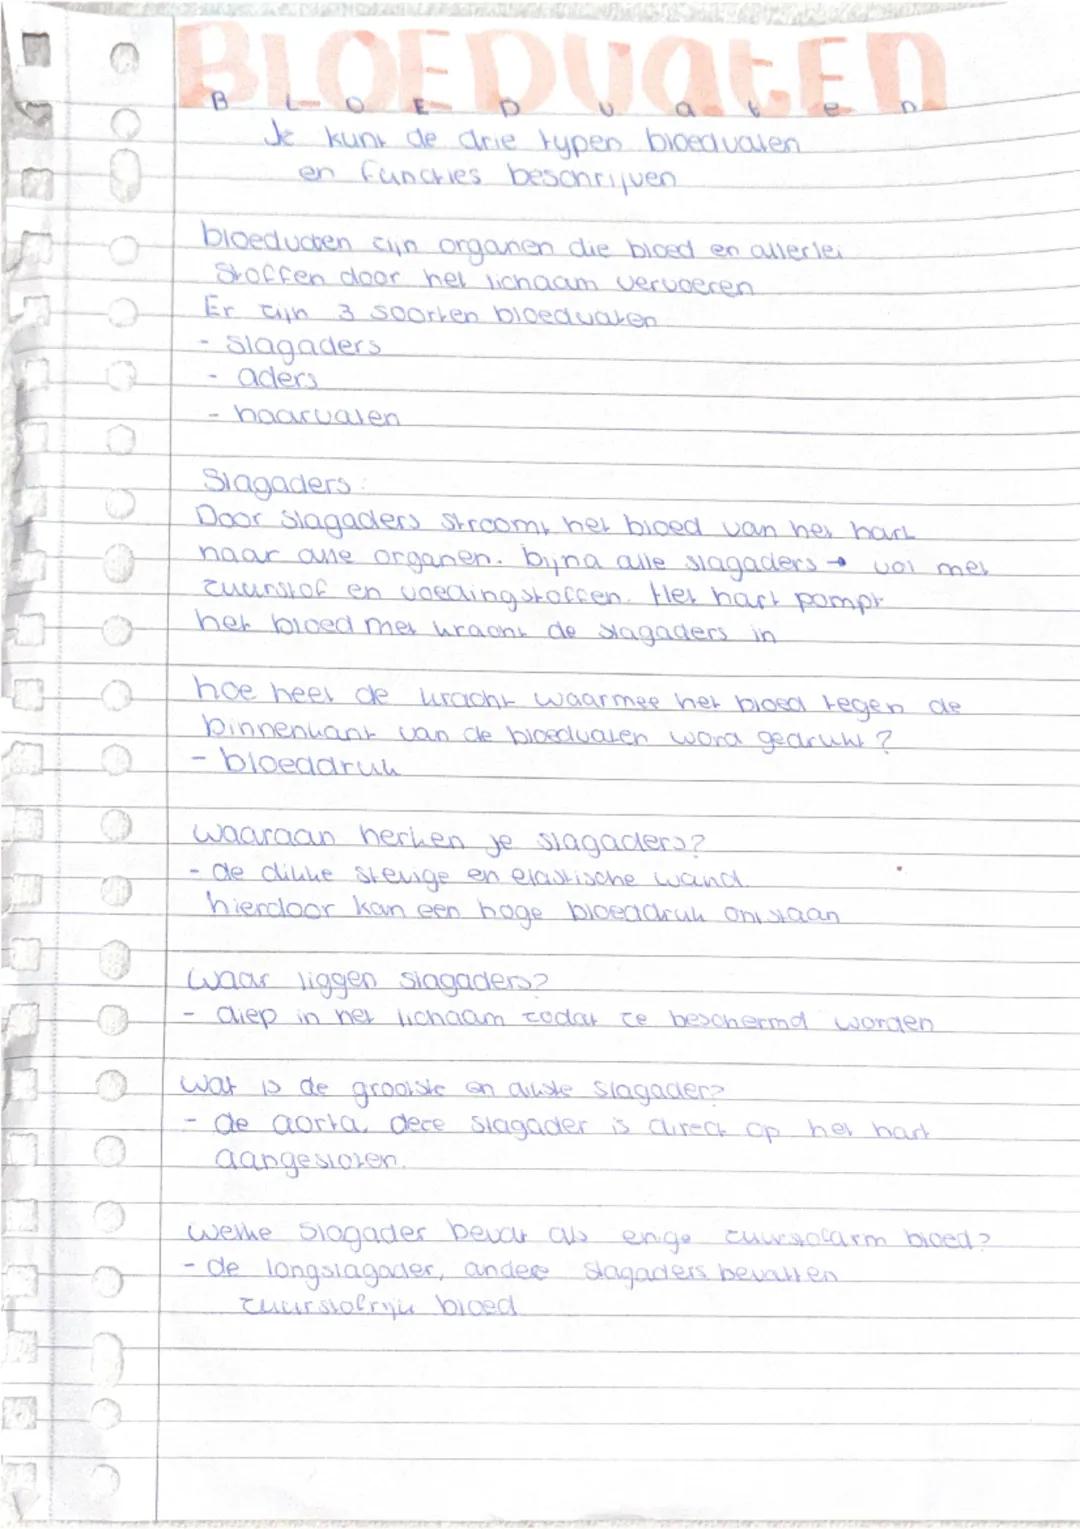 BLOEDVATEN
B L O E D V a t e n
Je kunt de drie typen bloedvaten
en functies beschrijven
bloedvaten zijn organen die bloed en allerlei
Stoffen door het lichaam vervoeren
Er zijn 3 soorten bloedvaten
- slagaders
- aders
- haarvaten
Slagaders:
Door slagaders stroomt het bloed van het hart
naar alle organen. bijna alle slagaders → vol met
zuurstof en voedingstoffen. Het hart pompt
het bloed met kracht de slagaders in
hoe heet de kracht waarmee het bloed tegen de
binnenkant van de bloedvaten word gedrukt?
- bloeddruk
waaraan herken je slagaders?
- de dikke stevige en elastische wand.
hierdoor kan een hoge bloeddruk ontstaan
waar liggen slagaders?
- diep in het lichaam zodat ze beschermd worden
wat is de grootste en dikste slagader?
- de aorta. deze slagader is direct op het hart
aangesloten.
welke slagader bevat als enige zuurstofarm bloed?
- de longslagader, andere slagaders bevatten
zuurstofrijk bloed